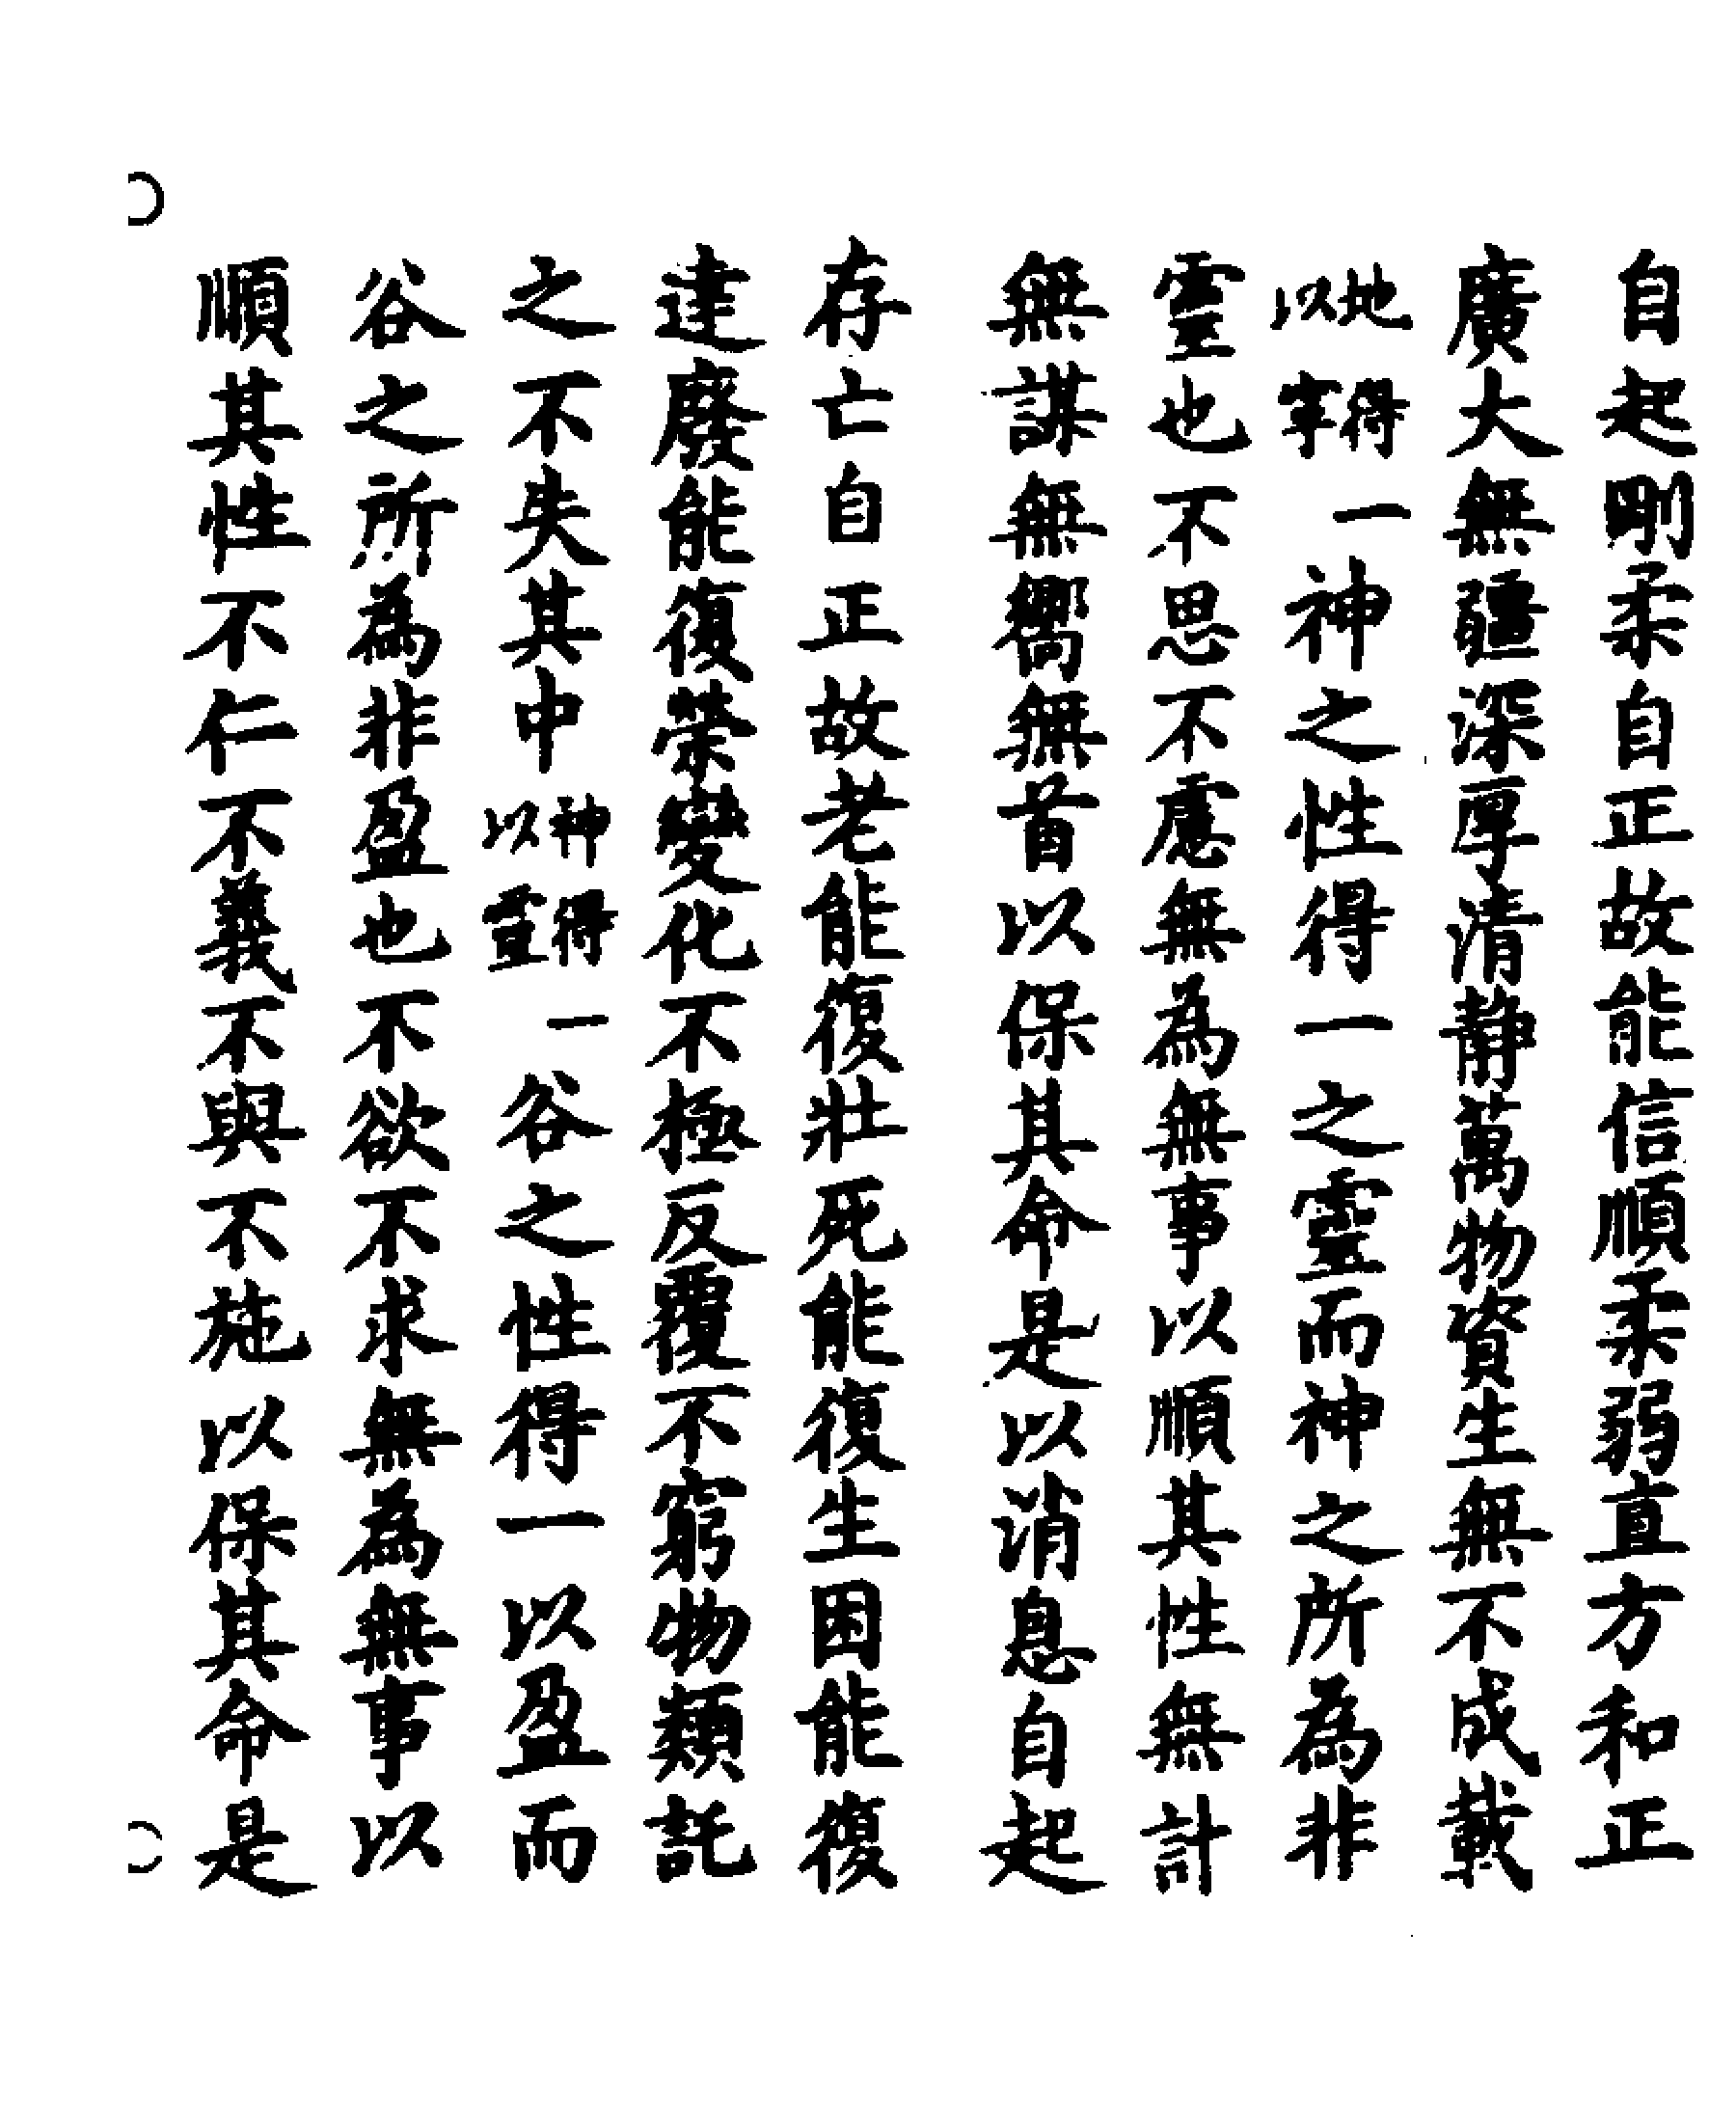 自起剛柔自正故能信順柔弱直方和正
廣大無疆深厚清靜萬物資生無不成載
地得一以寧神之性得一之靈而神之所為非
靈也不思不慮無為無事以順其性無計
無謀無嚮無首以保其命是以消息自起
存亡自正故老能復壯死能復生困能復
建廢能復榮變化不極反覆不窮物類託
之不失其中神得一以靈谷之性得一以盈而
谷之所為非盈也不欲不求無為無事以
順其性不仁不義不與不施以保其命是